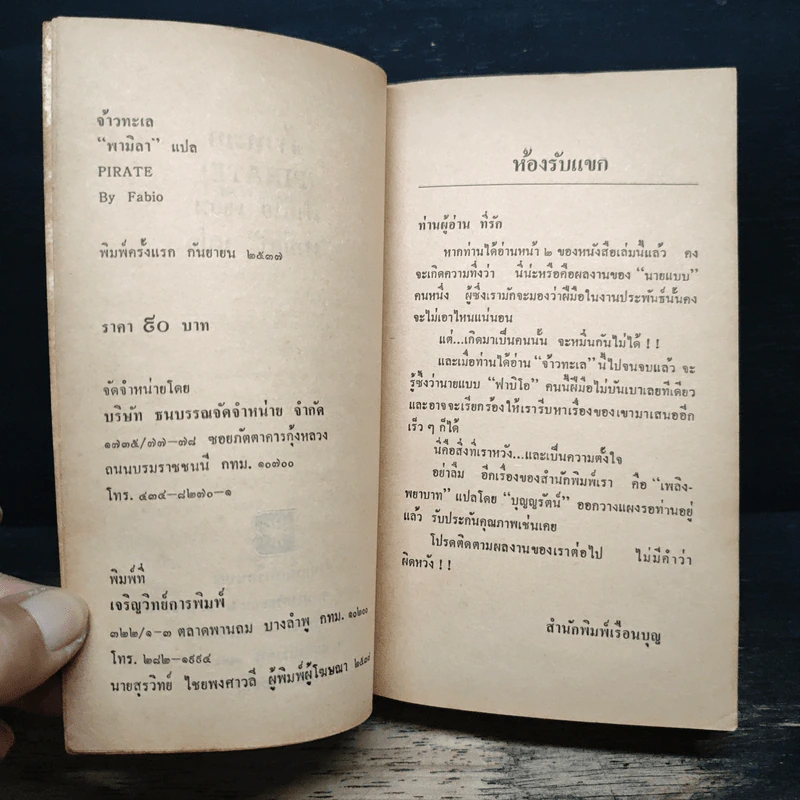 จ้าวทะเล
“พามิลา” แปล
PIRATE
By Fabio
พิมพ์ครั้งแรก กันยายน ๒๕๓๗
ราคา ๕๐ บาท
จัดจำหน่ายโดย
บริษัท ธนบรรณจัดจำหน่าย จำกัด
๑๗๓๕/๗๗-๗๘ ซอยภัตตาคารกุ้งหลวง
ถนนบรมราชชนนี กทม. ๑๐๗๐๐
โทร. ๔๓๔-๘๒๗๐-๑
พิมพ์ที่
เจริญวิทย์การพิมพ์
๓๒๒/๑-๓ ตลาดพานถม บางลำพู กทม. ๑๐๒๐๐
โทร. ๒๘๒-๑๙๙๔
นายสุรวิทย์ ไชยพงศาวลี ผู้พิมพ์ผู้โฆษณา ๒๕๓๗
ห้องรับแขก
ท่านผู้อ่าน ที่รัก
หากท่านได้อ่านหน้า ๒ ของหนังสือเล่มนี้แล้ว คง
จะเกิดความทึ่งว่า นี่น่ะหรือคือผลงานของ “นายแบบ”
คนหนึ่ง ผู้ซึ่งเรามักจะมองว่าฝีมือในงานประพันธ์นั้นคง
จะไม่เอาไหนแน่นอน
แต่...เกิดมาเป็นคนนั้น จะหมิ่นกันไม่ได้!!
และเมื่อท่านได้อ่าน “จ้าวทะเล” นี้ไปจนจบแล้ว จะ
รู้ซึ้งว่านายแบบ “ฟาบิโอ” คนนี้ฝีมือไม่บันเบาเลยทีเดียว
และอาจจะเรียกร้องให้เรารีบหาเรื่องของเขามาเสนออีก
เร็ว ๆ ก็ได้
นี่คือสิ่งที่เราหวัง...และเป็นความตั้งใจ
อย่าลืม อีกเรื่องของสำนักพิมพ์เรา คือ “เพลิง-
พยาบาท” แปลโดย “บุญญรัตน์” ออกวางแผงรอท่านอยู่
แล้ว รับประกันคุณภาพเช่นเคย
โปรดติดตามผลงานของเราต่อไป ไม่มีคำว่า
ผิดหวัง!!
สำนักพิมพ์เรือนบุญ